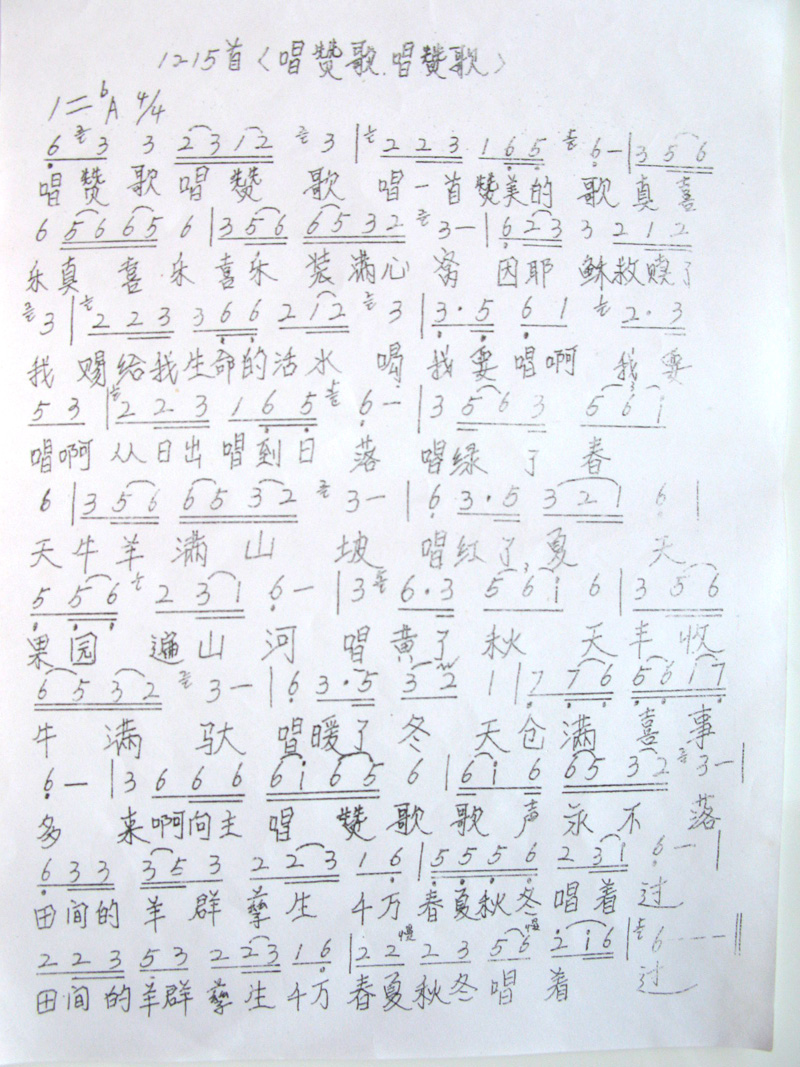 1215首〈唱赞歌.唱赞歌〉
1=ᵇA 4/4
6 3 3 2312 3 | 2 23 165 6- | 356
唱赞歌唱赞歌唱一首赞美的歌真喜
6 56665 6 | 356 6532 3- | 623 3 212
乐真喜乐喜乐装满心窝因耶稣救赎了
3 | 2 23 366 212 3 | 3·5 61 2·3
我赐给我生命的活水喝我要唱啊我要
53 | 2 23 165 6- | 3 563 56i
唱啊从日出唱到日落唱绿了春
6 | 356 6532 3- | 6 3·5 321 6 |
天牛羊满山坡唱红了,夏天
556 231 6- | 3 6·3 56i 6 | 356
果园遍山河唱黄了秋天丰收
6532 3- | 6 3·5 32 1 | 776 5617
牛满驮唱暖了冬天仓满喜事
6- | 3 666 6i65 6 | 6i6 6532 3- |
多来啊向主唱赞歌歌声永不落
633 353 223 16 | 5556 231 6- |
田间的羊群孳生千万春夏秋冬唱着过
223 53 223 16 | 22慢 23 56慢 2i6 | 6--- ‖
田间的羊群孳生千万春夏秋冬唱着过